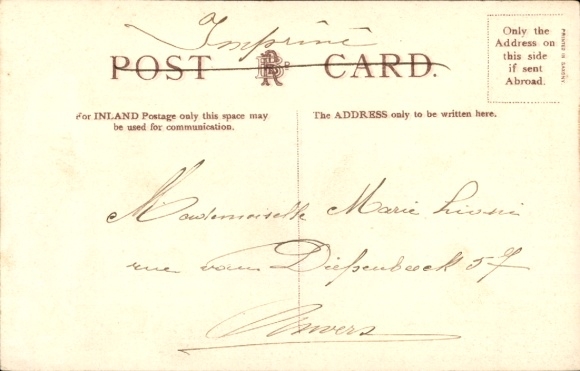 Imprimé
POST CARD.
Only the
Address on
this side
if sent
Abroad.
PRINTED IN SAXONY
For INLAND Postage only this space may
be used for communication.
The ADDRESS only to be written here.
Mademoiselle Marie
rue van Diepenbeeck 57
Anvers